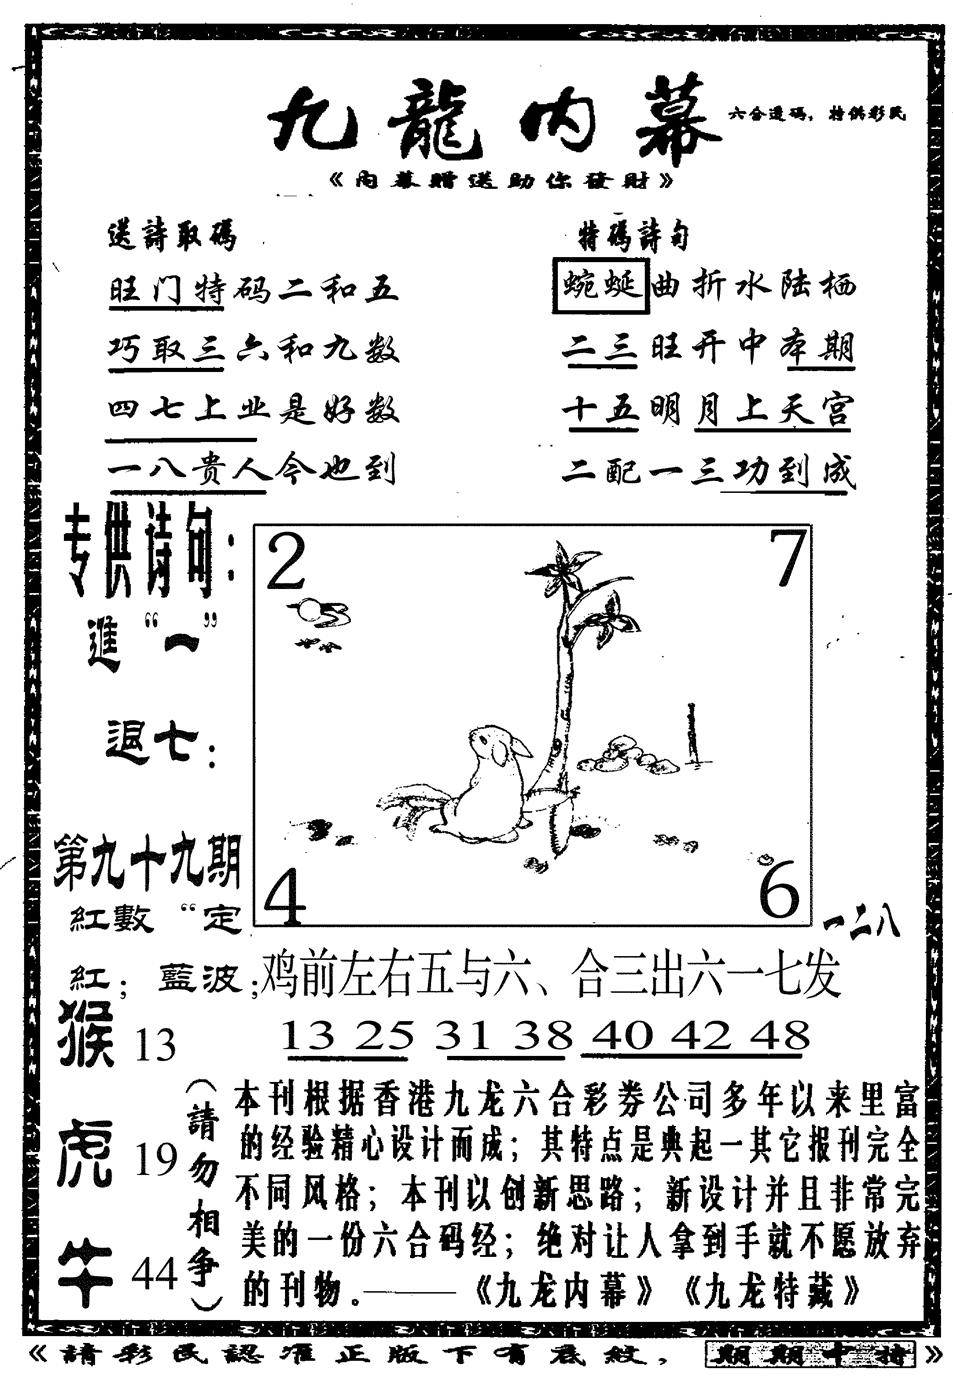 九龍内幕
六合透码，特供彩民
《内幕贈送助你發財》
送詩取碼
旺门特码二和五
巧取三六和九数
四七上业是好数
一八贵人今也到
特碼詩句
蜿蜒曲折水陆栖
二三旺开中本期
十五明月上天宫
二配一三功到成
专供诗句：
進“一”
退七：
第九十九期
紅數“定
紅；藍波；
猴 13
虎 19
牛 44
2 7
4 6
一二八
鸡前左右五与六、合三出六一七发
13 25 31 38 40 42 48
（請勿相争）
本刊根据香港九龙六合彩券公司多年以来里富
的经验精心设计而成；其特点是典起一其它报刊完全
不同风格；本刊以创新思路；新设计并且非常完
美的一份六合码经；绝对让人拿到手就不愿放弃
的刊物。———《九龙内幕》《九龙特藏》
《請彩民認准正版下有底紋，期期中特》